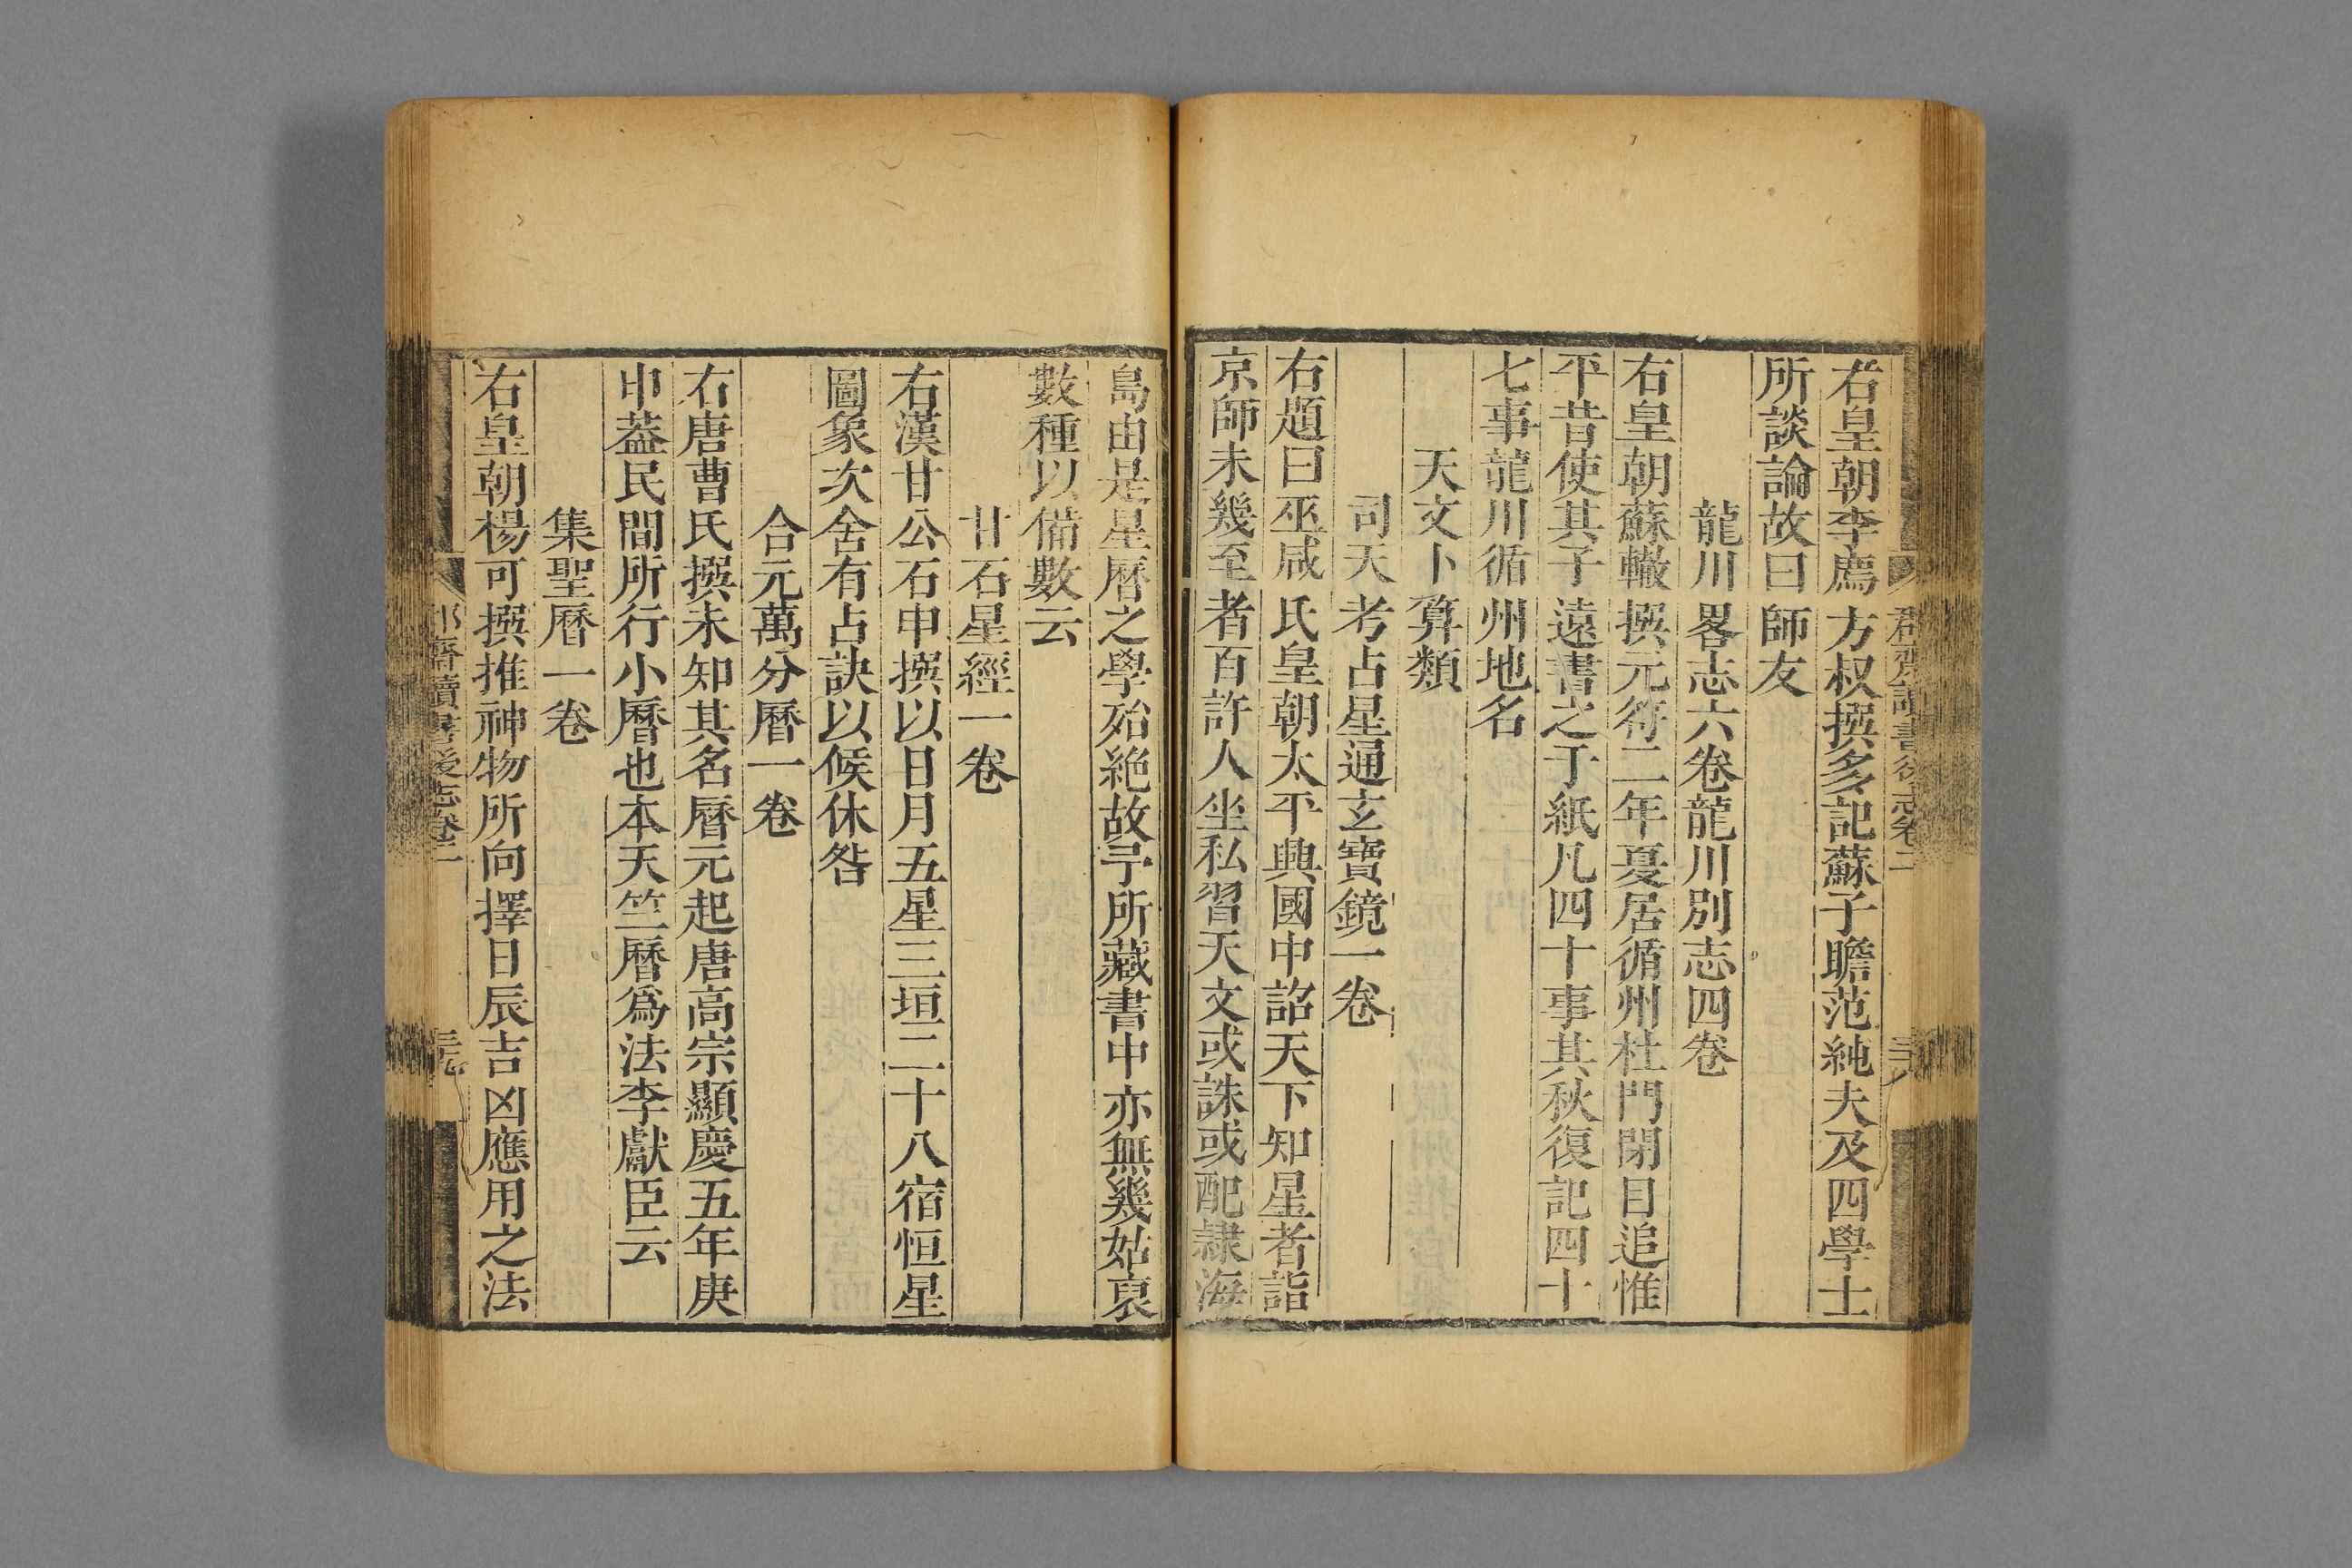 右皇朝李廌方叔撰多記蘇子瞻范純夫及四學士
所談論故曰師友
龍川畧志六卷龍川別志四卷
右皇朝蘇轍撰元符二年夏居循州杜門閉目追惟
平昔使其子遠書之于紙凡四十事其秋復記四十
七事龍川循州地名
天文卜算類
司天考占星通玄寶鏡一卷
右題曰巫咸氏皇朝太平興國中詔天下知星者詣
京師未幾至者百許人坐私習天文或誅或配隸海
島由是星曆之學殆絶故予所藏書中亦無幾姑裒
數種以備數云
甘石星經一卷
右漢甘公石申撰以日月五星三垣二十八宿恒星
圖象次舍有占訣以候休咎
合元萬分曆一卷
右唐曹氏撰未知其名曆元起唐高宗顯慶五年庚
申葢民間所行小曆也本天竺曆爲法李獻臣云
集聖曆一卷
右皇朝楊可撰推神物所向擇日辰吉凶應用之法
齋讀書後志卷二